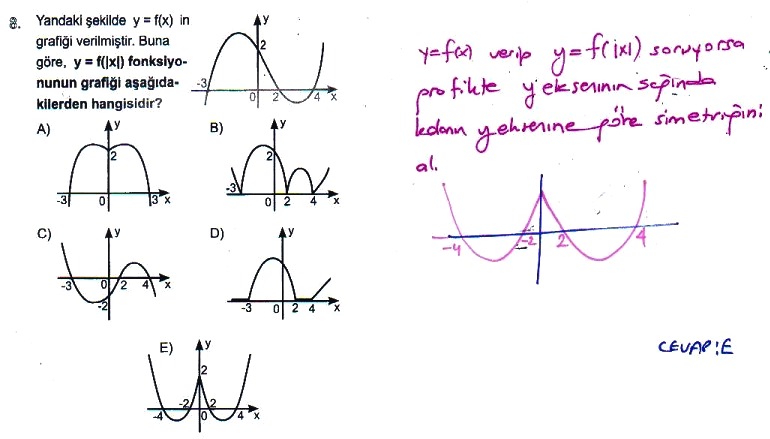 8. Yandaki şekilde y = f(x) in
grafiği verilmiştir. Buna
göre, y = f(|x|) fonksiyo-
nunun grafiği aşağıda-
kilerden hangisidir?
y
2
-3
0
2
4
x
A)
y
2
-3
0
3
x
B)
y
2
-3
0
2
4
x
C)
y
-3
0
2
4
x
-2
D)
y
-3
0
2
4
x
E)
y
2
-4
-2
0
2
4
x
y=f(x) verip y=f(|x|) soruyorsa
profikte y ekseninin sağında
kalanın y eksenine göre simetriğini
al.
-4
-2
2
4
CEVAP:E